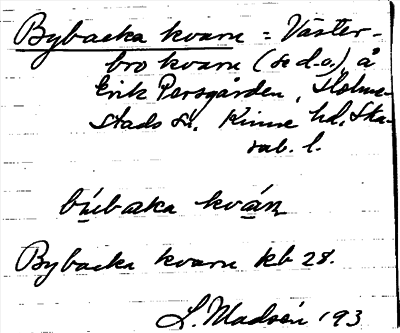 Bybacka kvarn = Väster-
bro kvarn (se d.o.), å
Erik Persgården, Holme-
stads sn. Kinne hd. Ska-
rab. l.
bỳbaka kván
Bybacka kvarn kb 28.
L. Madsén 193